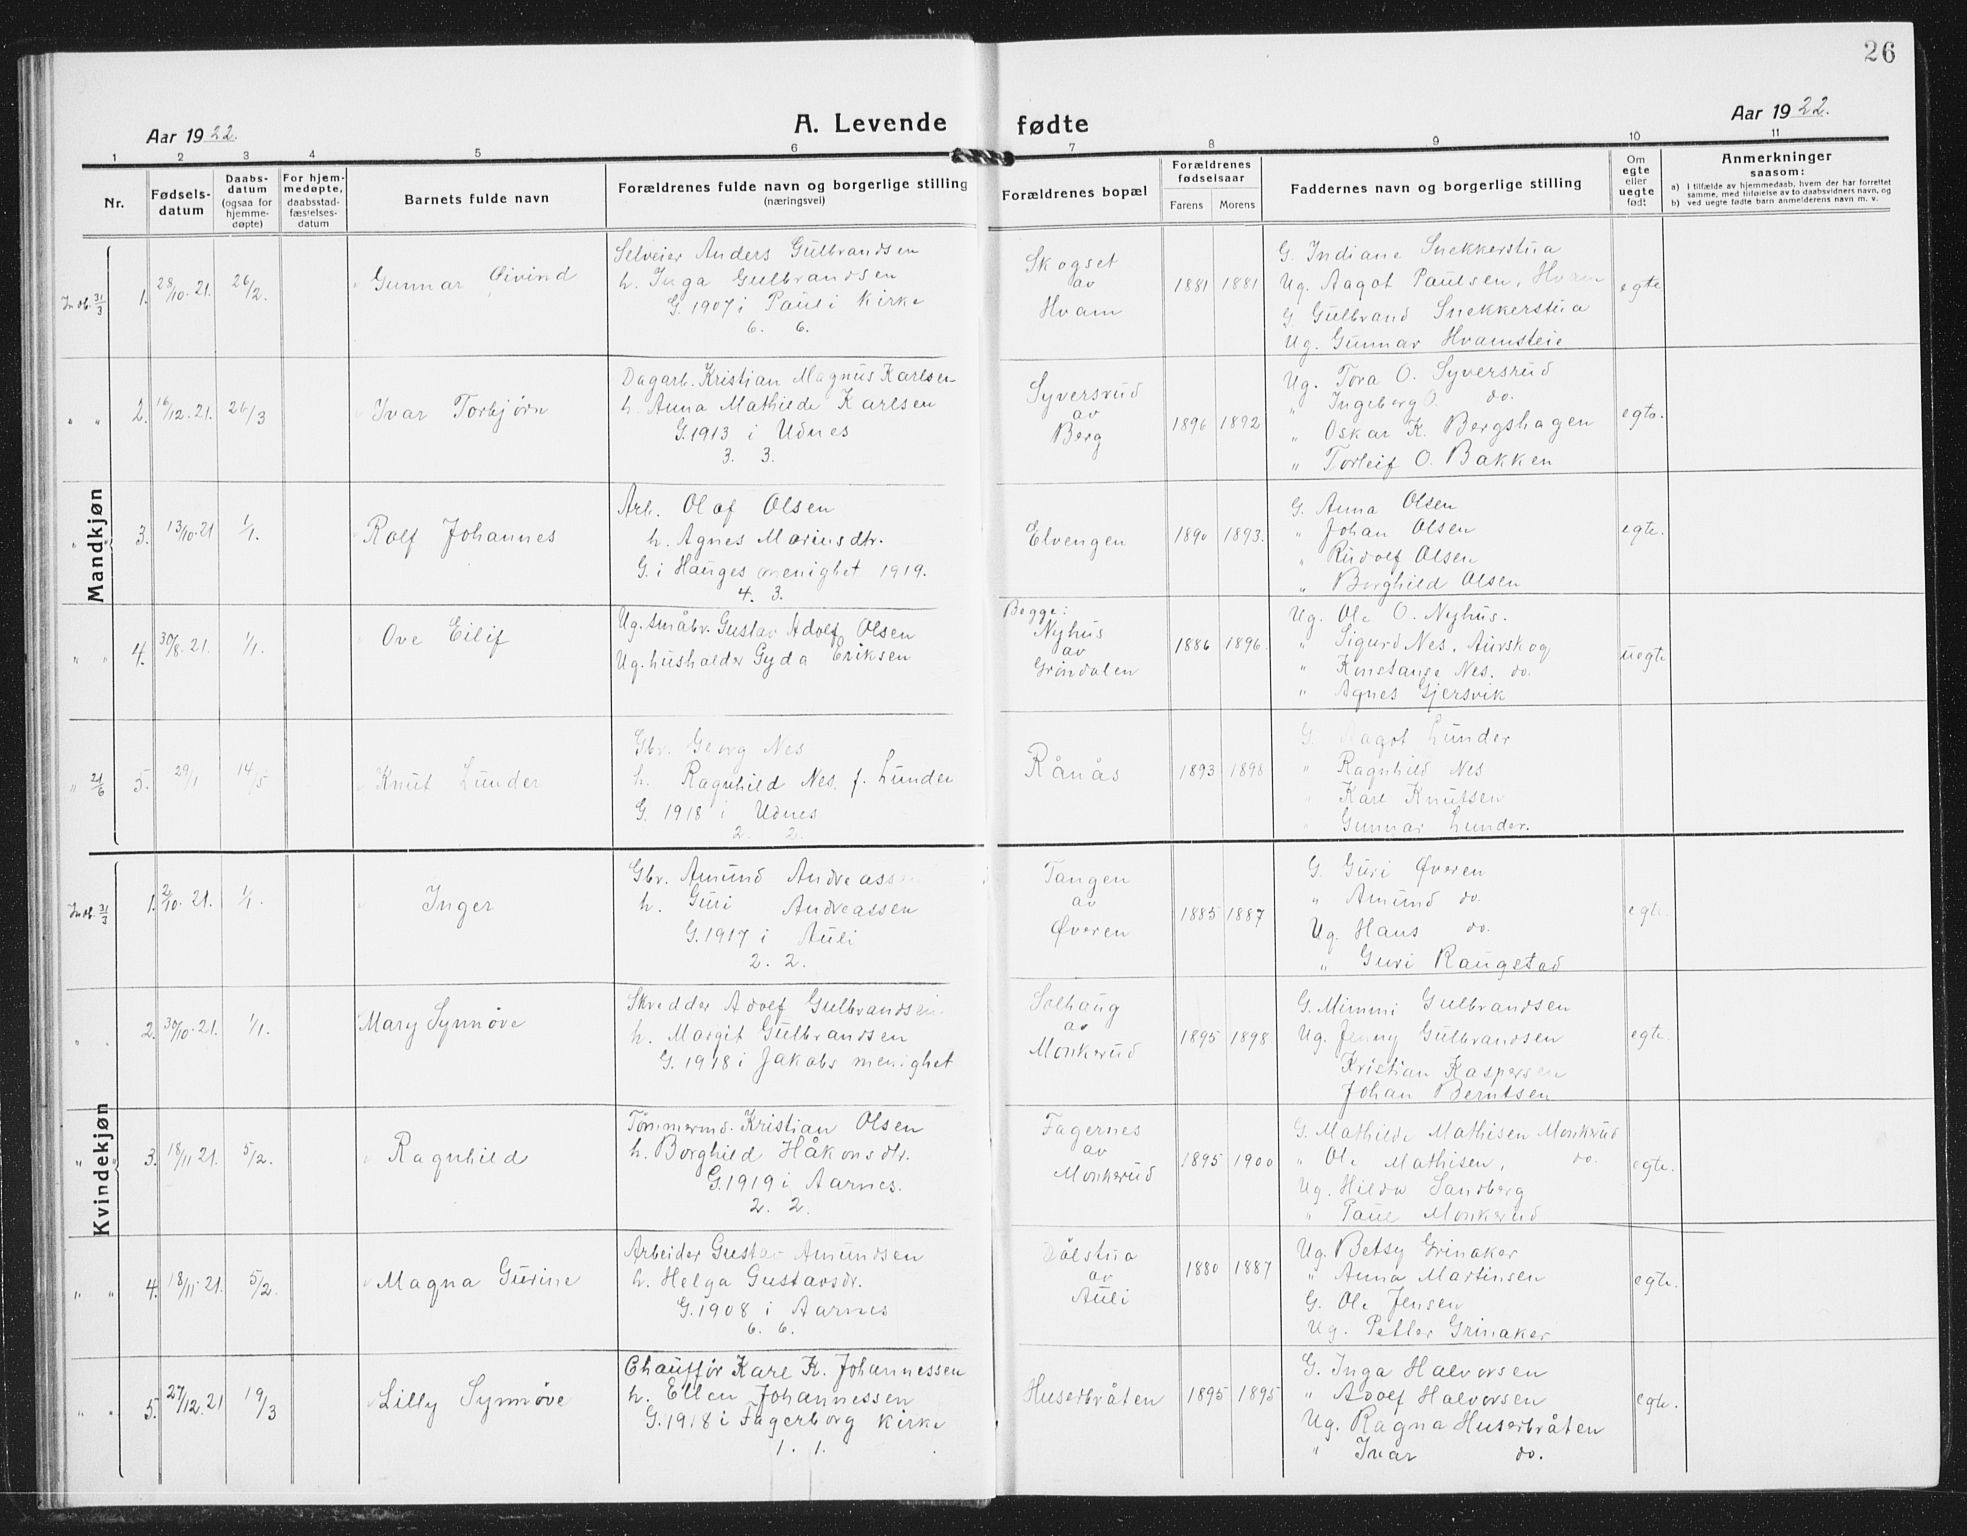 26
Aar 1922.
A. Levende fødte
Aar 1922.
1 2 3 4 5 6 7 8 9 10 11
Nr.
Fødsels-
datum
Daabs-
datum
(ogsaa for
hjemme-
døpte)
For hjem-
medøpte,
daabsstad-
fæstelses-
datum
Barnets fulde navn
Forældrenes fulde navn og borgerlige stilling
(næringsvei)
Forældrenes bopæl
Forældrenes
fødselsaar
Farens Morens
Faddernes navn og borgerlige stilling
Om
egte
eller
uegte
født
Anmerkninger
saasom:
a) i tilfælde av hjemmedaab, hvem der har forrettet
samme, med tilføielse av to daabsvidners navn, og
b) ved uegte fødte barn anmelderens navn m. v.
Mandkjøn
Indb. 31/3 1. 28/10.21. 26/2. Gunnar Øivind
Selveier Anders Gulbrandsen
h. Inga Gulbrandsen
G. 1907 i Pauli kirke
6. 6.
Skogset
av
Hvam
1881 1881
G. Indiane Snekkerstua
Ug. Aagot Paulsen, Hvam
G. Gulbrand Snekkerstua
Ug. Gunnar Hvamsteie
egte
" " 2. 16/12.21. 26/3 Ivar Torbjørn
Dagarb. Kristian Magnus Karlsen
h. Anna Mathilde Karlsen
G. 1913 i Udnes
3. 3.
Syversrud
av
Berg
1896 1892
Ug. Tora O. Syversrud
" Ingeborg O. do.
" Oskar K. Bergshagen
" Torleif O. Bakken
egte.
" " 3. 13/10.21 1/1. Rolf Johannes
Arb. Olaf Olsen
h. Agnes Mariusdtr.
G. i Hauges menighet 1919.
4. 3.
Elvengen
1890 1893.
G. Anna Olsen
" Johan Olsen
" Rudolf Olsen
" Borghild Olsen
egte.
" " 4. 30/8.21. 1/1. Ove Eilif
Ug. småbr. Gustav Adolf Olsen
Ug. husholder Gyda Eriksen
Begge:
Nyhus
av
Grøndalen
1886 1896.
Ug. Ole O. Nyhus.
" Sigurd Nes, Aurskog
" Konstanse Nes. do.
" Agnes Gjersvik
uegte
" 21/6 5. 29/1 14/5 Knut Lunder
Gbr. Georg Nes
h. Ragnhild Nes. f. Lunder
G. 1918 i Udnes
2. 2.
Rånås
1893 1898
G. Aagot Lunder
" Ragnhild Nes
" Karl Knutsen
" Gunnar Lunder.
Kvindekjøn
Indb. 31/3 1. 2/10.21. 1/1. Inger
Gbr. Amund Andreassen
h. Guri Andreassen
G. 1917 i Auli
2. 2.
Tangen
av
Øveren
1885 1887
G. Guri Øveren
" Amund do.
Ug. Hans do.
" Guri Raugstad
egte.
" " 2. 30/10.21. 1/1. Mary Synnøve
Skredder Adolf Gulbrandsen
h. Margit Gulbrandsen
G. 1918 i Jakobs menighet
Solhaug
av
Monkerud
1895 1898
G. Mimmi Gulbrandsen
Ug. Jenny Gulbrandsen
Kristian Kaspersen
Johan Berntsen
egte.
" " 3. 18/11 21. 5/2. Ragnhild
Tømmermd. Kristian Olsen
h. Borghild Håkonsdtr.
G. 1919 i Aarnes.
2. 2.
Fagernes
av
Monkerud
1895 1900
G. Mathilde Mathisen Monkerud
" Ole Mathisen, do.
Ug. Hilda Sandberg
" Paul Monkerud
egte.
" " 4. 18/11.21. 5/2. Magna Gurine
Arbeider Gustav Amundsen
h. Helga Gustavsdr.
G. 1908 i Aarnes
6. 6.
Dålstua
av
Auli
1880 1887
Ug. Betsy Grinaker
" Anna Martinsen
G. Ole Jensen
Ug. Petter Grinaker
egte.
" " 5. 27/12.21 19/3 Lilly Synnøve
Chauffør Karl K. Johannessen
h. Ellen Johannessen
G. 1918 i Fagerborg kirke
1. 1.
Huserbråten
1895 1895
G. Inga Halvorsen
" Adolf Halvorsen
Ug. Ragna Huserbråten
" Ivar do.
egte.